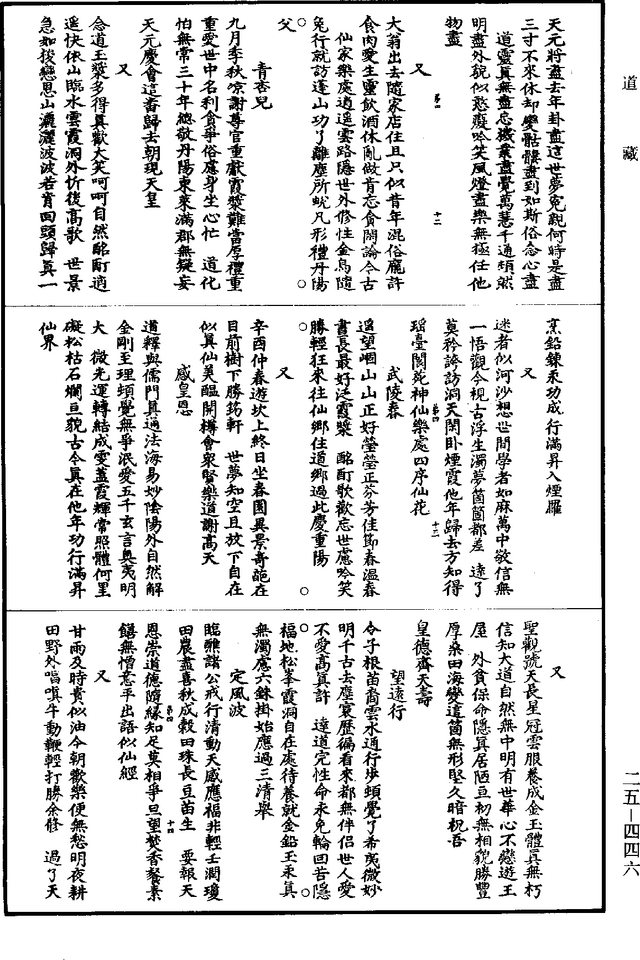 道藏
天元將盡去年卦盡這世夢冤親何時是盡
三寸不來休却變骷髏盡到如斯俗念心盡
道靈真無盡忘機業盡覺萬慧千通頓然
明盡外貌似憨癡吟笑風燈盡樂無極任他
物盡
又
大翁出去隨家店住且只似昔年混俗龐許
食肉愛生靈飲酒休亂做肯忘貪鬪論今古
仙家樂處逍遥雲路隱世外修性金烏隨
兔行就訪蓬山功了離塵所蛻凡形禮丹陽
父
青杏兒
九月季秋凉謝尊官重獻霞漿難當厚禮重
重愛世中名利貪爭俗慮身生心忙 道化
怕無常三十年總敬丹陽東萊滿郡無疑妄
天元慶會這番歸去朝現天皇
又
念道玉漿多得真歡大笑呵呵自然酩酊逍
遥快依山臨水雲霞洞外忻後高歌 世景
急如梭戀恩山灑灑波波若肯回頭歸真一
烹鉛鍊汞功成行滿昇入煙蘿
又
迷者似河沙想世間學者如麻萬中敬信無
一悟觀今視古浮生濁夢箇箇都差 達了
莫矜誇訪洞天閑卧煙霞他年歸去方知得
瑶臺閬苑神仙樂處四序仙花
武陵春
遥望崓山山正好瑩瑩正芬芳佳節春温春
晝長最好泛霞漿 酩酊歌歡忘世慮吟笑
勝輕狂來往仙鄉住道鄉過此慶重陽
又
辛酉仲春遊坎上終日坐春園異景奇葩在
目前樹下勝筠軒 世夢知空且放下自在
似真仙美醞開樽會衆賢樂道謝高天
感皇恩
道釋與儒門真通法海易妙陰陽外自然解
金剛至理頓覺無爭泯愛五千玄言奥夷明
大 微光運轉結成雯蓋霞輝常照體何里
礙松枯石爛亘貌古今真在他年功行滿昇
仙界
又
聖觀號天長星冠雲服養成金玉體真無朽
信知大道自然無中明有世華心不戀遊王
屋 外貧保命隱真居陋亘初無相貌勝豐
厚桑田海變這箇無形堅久暗祝吾
皇德齊天壽
望遠行
令子根苗裔雲水通行步頓覺了希夷微妙
明千古去塵寰歷徧看來都無伴侣世人愛
不愛高真許 達道完性命永免輪回苦隱
福地松峯霞洞自在處待養就金鉛玉汞真
無濁慮六銖掛始應過三清舉
定風波
臨醮諸公戒行清動天感應福非輕壬澗瓊
田農盡喜秋成穀田珠長豆苗生 要報天
恩崇道德隨緣知足莫相爭旦望焚香餐素
饍無憎意乎出語似仙經
又
甘雨及時貴似油今朝歡樂便無愁明夜耕
田野外唱嗔牛動鞭輕打勝余修 過了天
二五—四四六